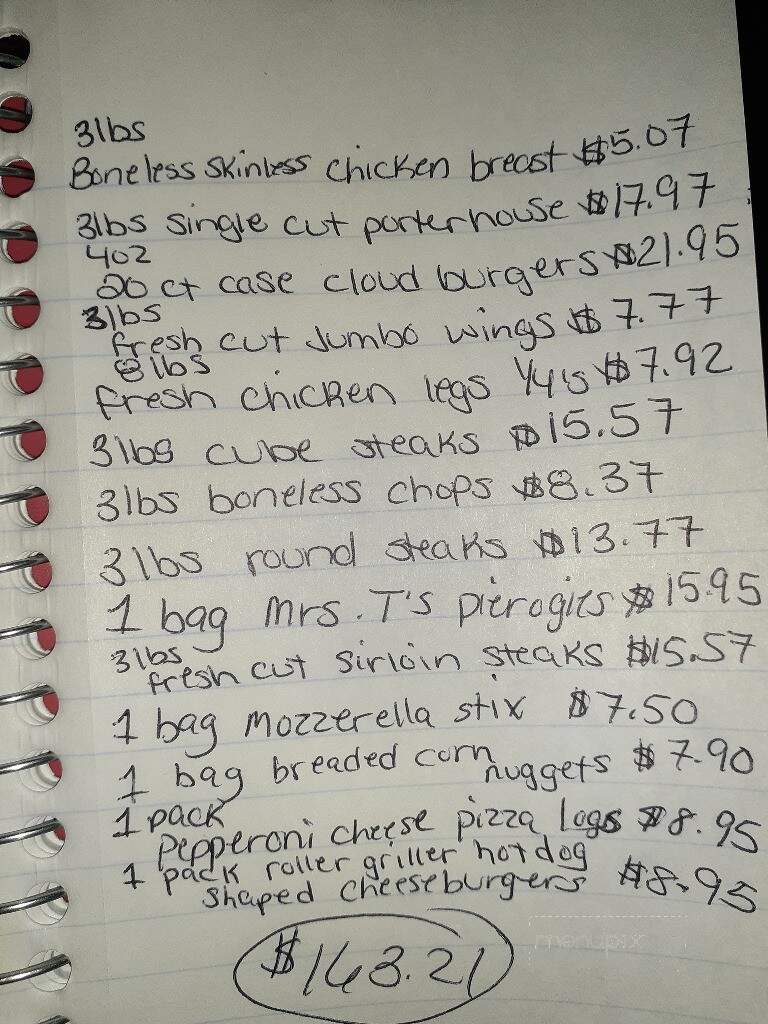 3lbs
Boneless skinless chicken breast $5.07
3lbs single cut porterhouse $17.97
4oz
20 ct case cloud burgers $21.95
3lbs
fresh cut Jumbo wings $7.77
8lbs
fresh chicken legs 1/4's $7.92
3lbs cube steaks $15.57
3lbs boneless chops $8.37
3lbs round steaks $13.77
1 bag mrs. T's pierogies $15.95
3lbs
fresh cut sirloin steaks $15.57
1 bag mozzerella stix $7.50
1 bag breaded corn
nuggets $7.90
1 pack
Pepperoni cheese pizza logs $8.95
1 pack roller griller hotdog
shaped cheeseburgers $8.95
$163.21
menupix